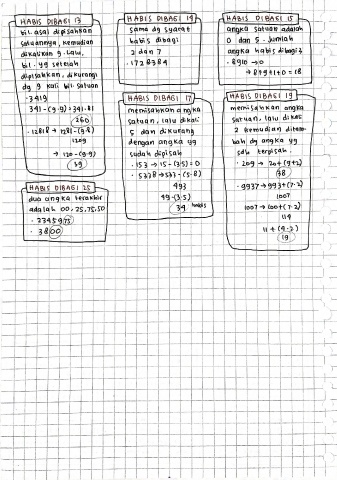 HABIS DIBAGI 13
bil. asal dipisahkan
satuannya, kemudian
dikalikan 9. Lalu,
bil. yg setelah
dipisahkan, dikurangi
dg 9 kali bil satuan
· 3419
341-(9·9)=341-81
260
· 12818 → 1281-(9·8)
1209
→ 120-(9·9)
39
HABIS DIBAGI 25
dua angka terakhir
adalah 00, 25, 75, 50
· 2345975
· 3800
HABIS DIBAGI 14
sama dg syarat
habis dibagi
2 dan 7
· 1728384
HABIS DIBAGI 17
memisahkan angka
satuan, lalu dikali
5 dan dikurang
dengan angka yg
sudah dipisah
· 153 → 15-(3·5)=0
· 5338 → 533-(5·8)
493
49-(3·5)
34 habis
HABIS DIBAGI 15
angka satuan adalah
0 dan 5. Jumlah
angka habis dibagi 3
· 8910 → 0
→ 8+9+1+0=18
HABIS DIBAGI 19
memisahkan angka
satuan, lalu dikali
2 kemudian ditam
bah dg angka yg
sdh terpisah.
· 209 → 20+(9×2)
38
· 9937 → 993+(7·2)
1007
1007 → 100+(7·2)
114
11+(4·2)
19